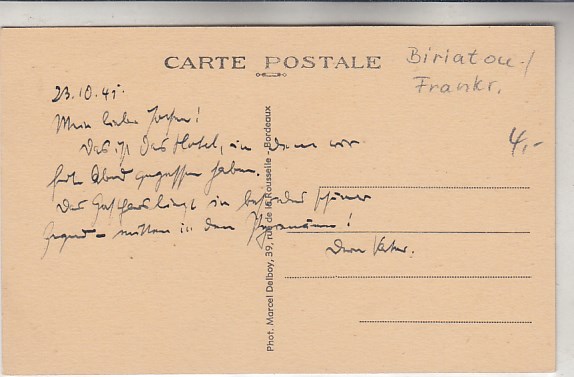 CARTE POSTALE
Biriatou-/
Frankr.
4,-
23.10.41.
Mein lieber Jochen!
Das ist das Hotel, in dem wir
heute Abend gegessen haben.
Das Gasthaus liegt in besonders schöner
Gegend – mitten in den Pyrenäen!
Dein Vater.
Phot. Marcel Delboy, 39, rue de la Rousselle - Bordeaux